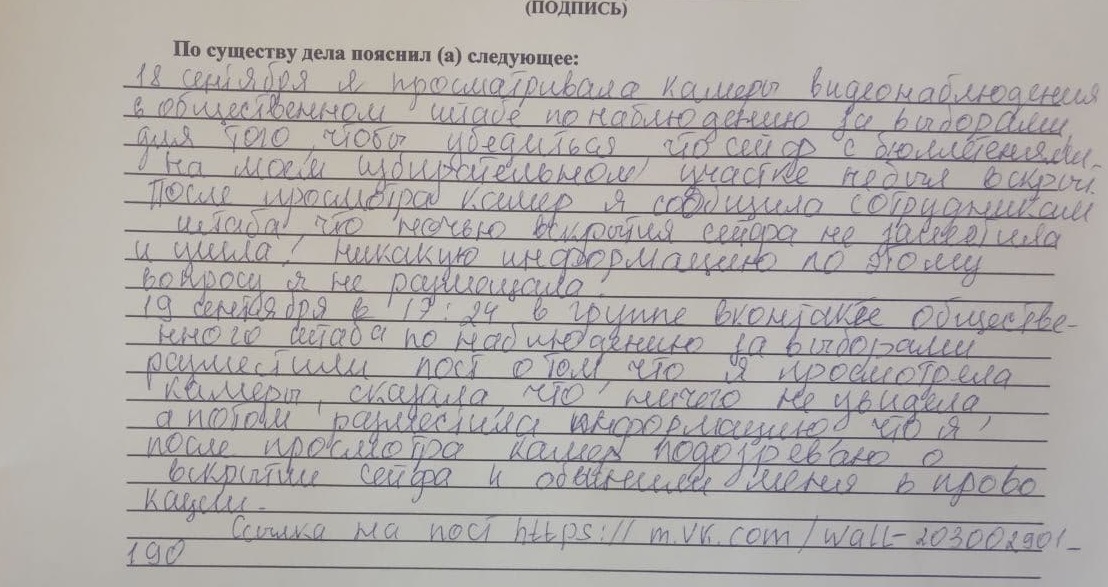 (ПОДПИСЬ)
По существу дела пояснил (а) следующее:
18 сентября я просматривала камеры видеонаблюдения
в общественном штабе по наблюдению за выборами,
для того, чтобы убедиться что сейф с бюллетенями
на моем избирательном участке не был вскрыт.
После просмотра камер я сообщила сотрудникам
штаба, что ночью вскрытия сейфа не заметила
и ушла. Никакую информацию по этому
вопросу я не размещала.
19 сентября в 17:24 в группе вконтакте обществе-
нного штаба по наблюдению за выборами
разместили пост о том что я просмотрела
камеры, сказала что ничего не увидела
а потом разместила информацию что я
после просмотра камер подозреваю о
вскрытии сейфа и обвинили меня в прово
кации.
Ссылка на пост https://m.vk.com/wall-203002901_
190